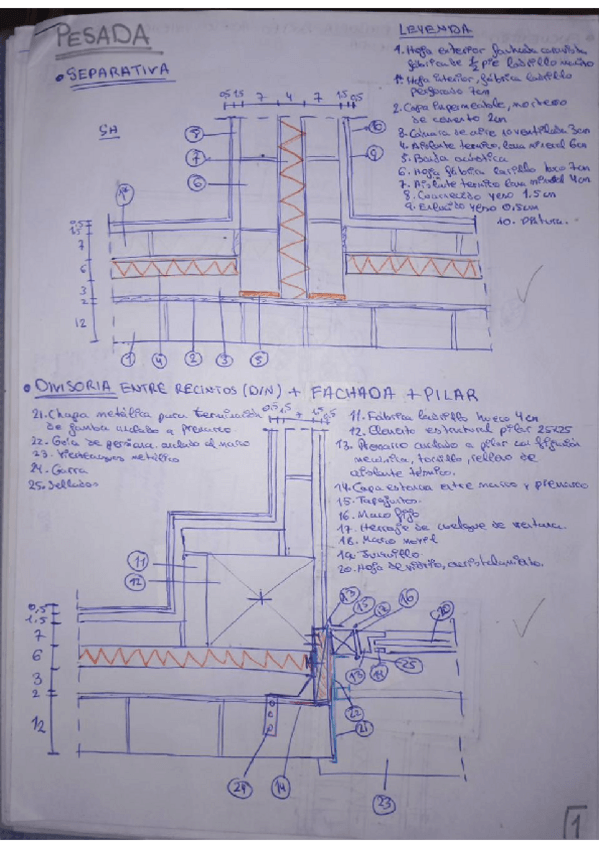 PESADA
LEYENDA
• SEPARATIVA
1. Hoja exterior fachada
fábrica de 1/2 pie ladrillo
1*. Hoja interior, fábrica ladrillo
perforado 7cm
2. Capa impermeable, mortero
de cemento 2cm
3. Cámara de aire 3cm
4. Aislante termico, lana mineral 6cm
5. Banda acústica
6. Hoja fábrica ladrillo 7cm
7. Aislante termico lana mineral 4cm
8. yeso 1.5cm
9. Enlucido yeso 0.5cm
10. Pintura.
0.5 1.5 7 4 7 1.5 0.5
8
10
7
9
6
1*
0,5
1.5
7
6
3
2
12
1 4 2 3 5
• DIVISORIA ENTRE RECINTOS (D/N) + FACHADA + PILAR
21. Chapa metálica para
de jamba anclado a premarco.
22. anclado al marco
23. metálico
24. Garra
25. Sellados
11. Fábrica ladrillo hueco 4cm
12. Elemento estructural pilar 25x25
13. Premarco anclado a pilar con fijación
mecánica, tornillo, relleno de
aislante térmico.
14. Capa estanca entre marco y premarco
15. Tapajuntas
16. Marco fijo
17. Herraje de cuelgue de
18. Marco movil
19. Junquillo
20. Hoja de vidrio, acristalamiento.
11
12
13 15 17 16 20
0,5
1.5
7
6
3
2
12
25
22
21
24 14 23
1